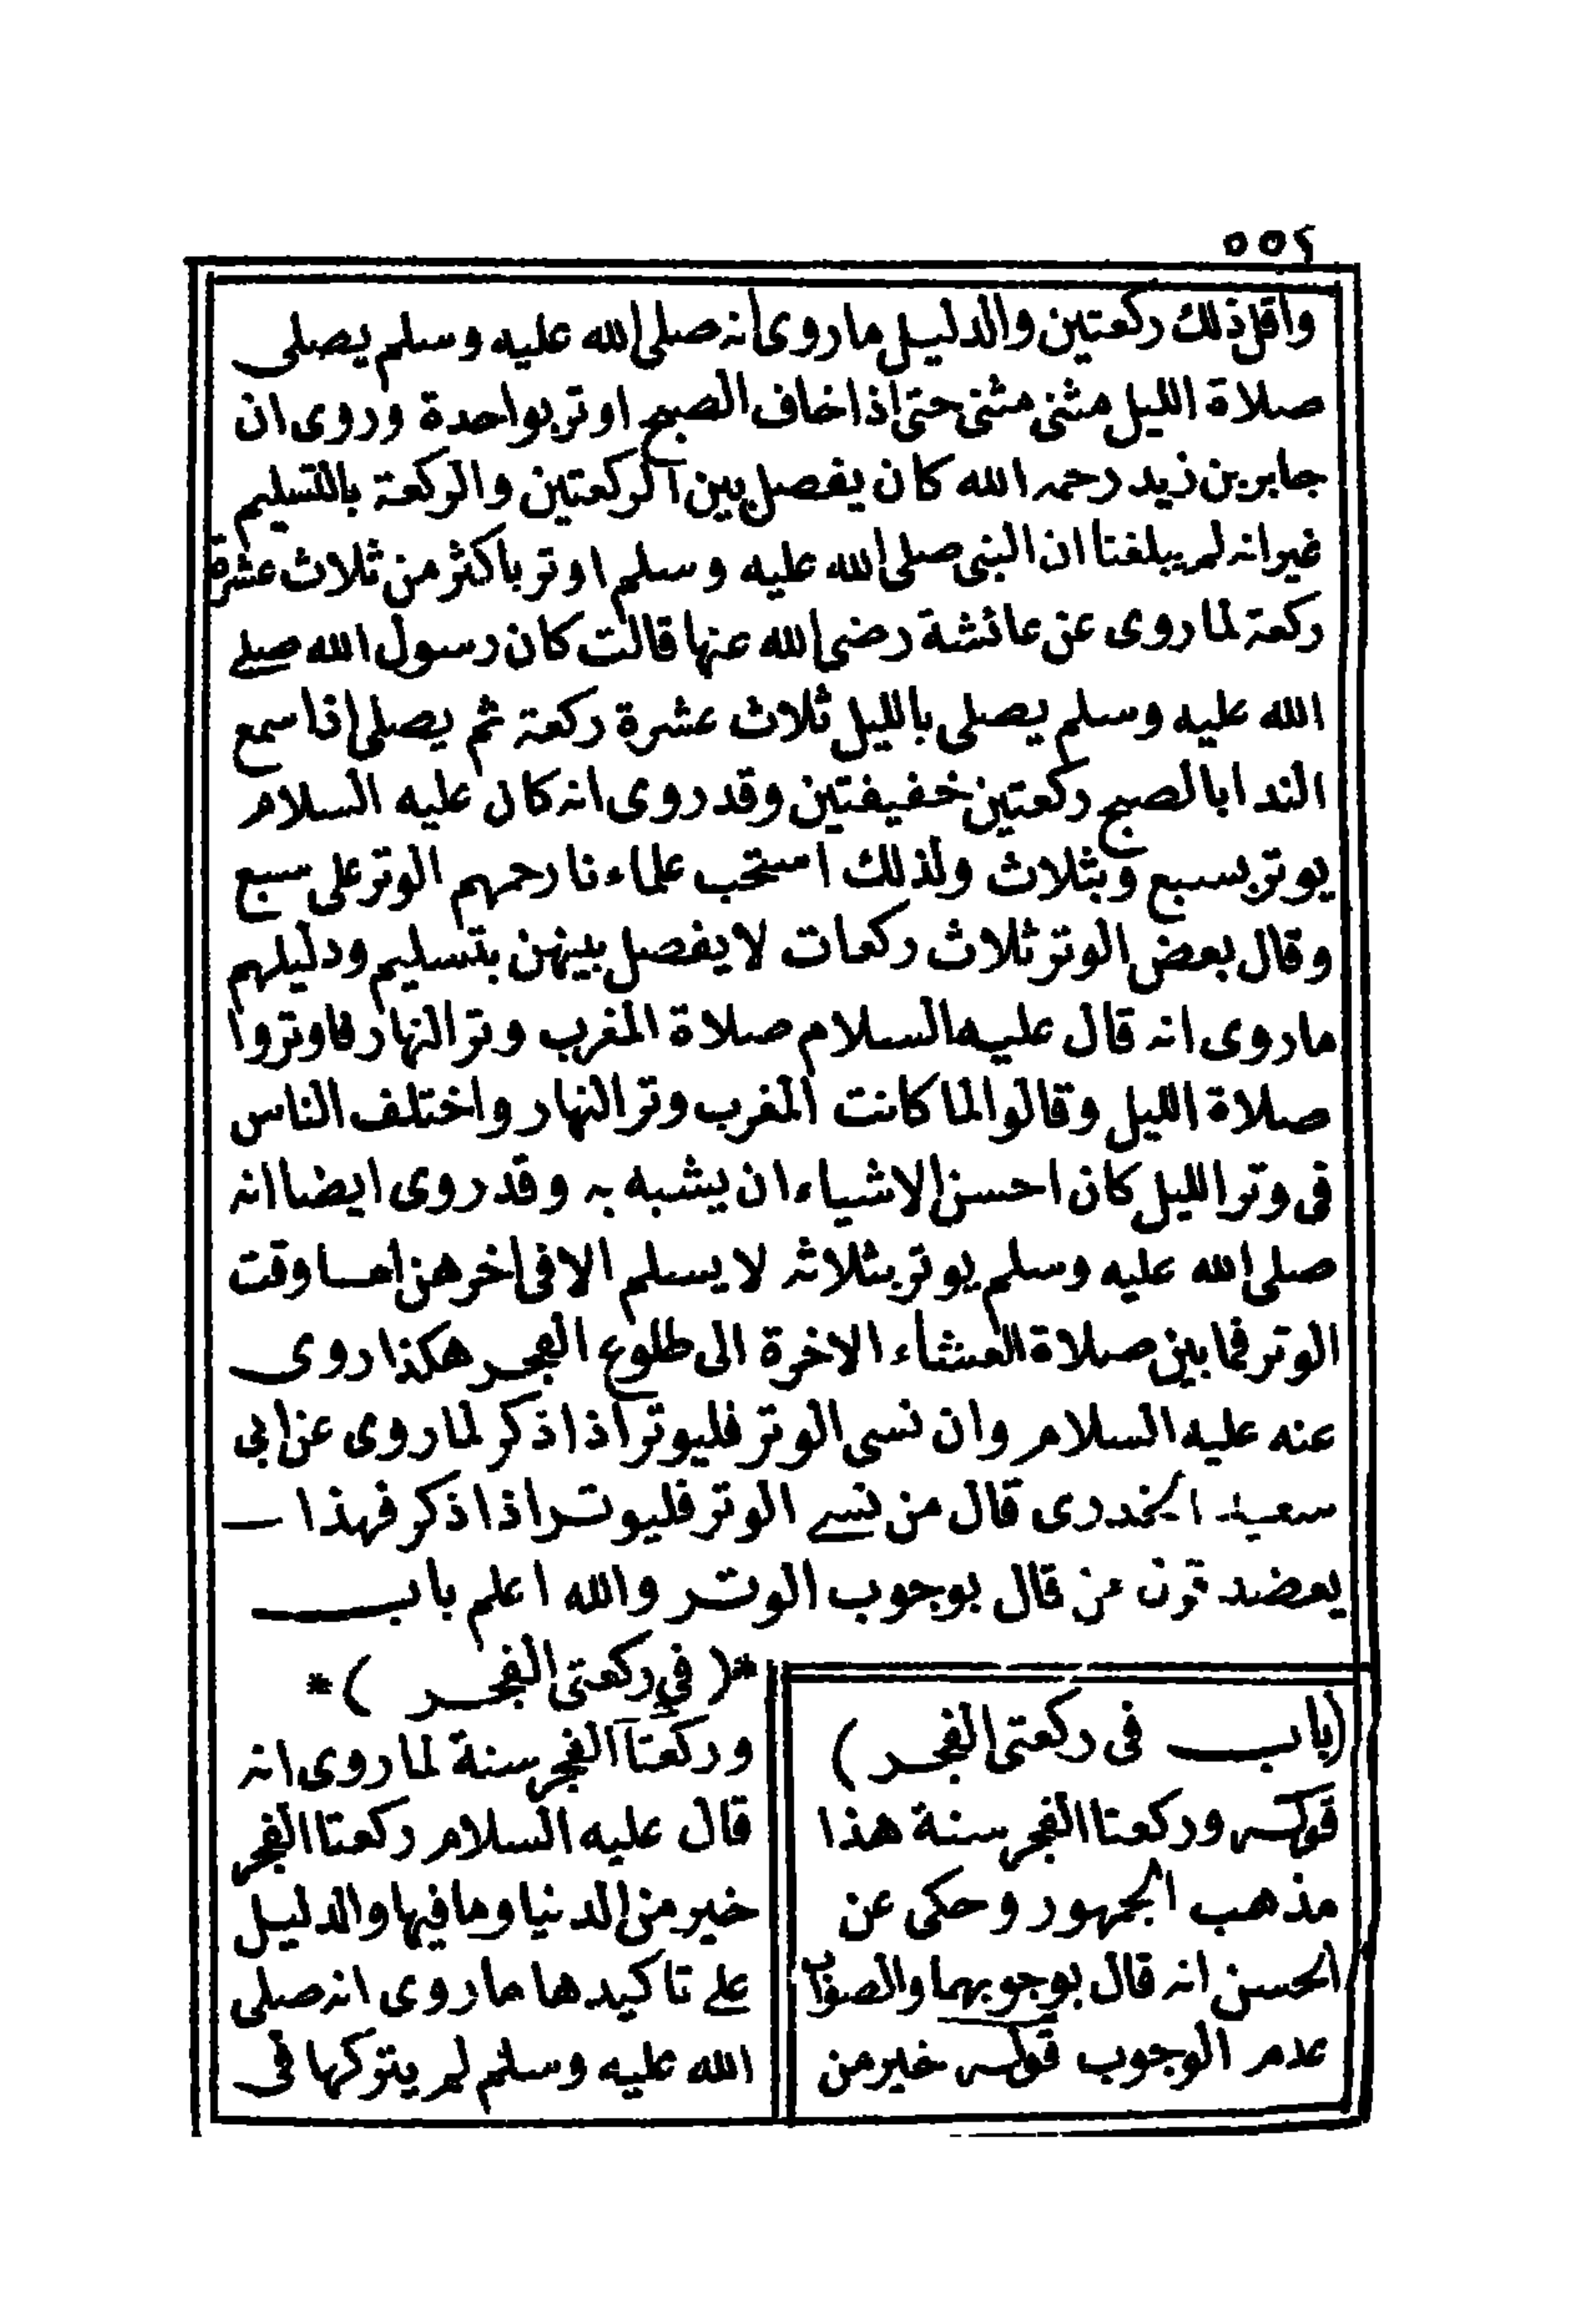 ٥٥٤
واقل ذلك ركعتين والدليل ما روى انه صلى الله عليه وسلم يصلى
صلاة الليل مثنى مثنى حتى اذا خاف الصبح اوتر بواحدة وروى ان
جابر بن زيد رحمه الله كان يفصل بين الركعتين والركعة بالتسليم
غير انه لم يبلغنا ان النبى صلى الله عليه وسلم اوتر باكثر من ثلاث عشرة
ركعة لما روى عن عائشة رضى الله عنها قالت كان رسول الله صلى
الله عليه وسلم يصلى بالليل ثلاث عشرة ركعة ثم يصلى اذا سمع
الندا بالصبح ركعتين خفيفتين وقد روى انه كان عليه السلام
يوتر بسبع وبثلاث ولذلك استحب علماءنا رحمهم الوتر على سبع
وقال بعض الوتر ثلاث ركعات لا يفصل بينهن بتسليم ودليلهم
ما روى انه قال عليه السلام صلاة المغرب وتر النهار فاوتروا
صلاة الليل وقالوا لما كانت المغرب وتر النهار واختلف الناس
فى وتر الليل كان احسن الاشياء ان يشبه به وقد روى ايضا انه
صلى الله عليه وسلم يوتر بثلاثه لا يسلم الا فى اخرهن امسا وقت
الوتر فما بين صلاة العشاء الاخرة الى طلوع الفجر هكذا روى
عنه عليه السلام وان نسى الوتر فليوتر اذا ذكر لما روى عن ابى
سعيد الخدرى قال من نسى الوتر فليوتر اذا ذكر فهذا
يعضد قول من قال بوجوب الوتر والله اعلم باب
*( فى ركعتى الفجر )*
وركعتا الفجر سنة لما روى انه
قال عليه السلام ركعتا الفجر
خير من الدنيا وما فيها والدليل
على تاكيدها ما روى انه صلى
الله عليه وسلم لم يتركها فى
(باب فى ركعتى الفجر )
قوله وركعتا الفجر سنة هذا
مذهب الجمهور وحكى عن
الحسن انه قال بوجوبهما والصواب
عدم الوجوب قوله خير من